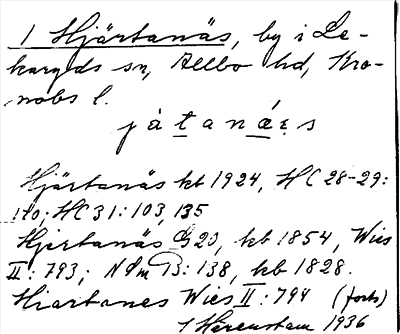 1 Hjärtanäs, by i Le-
karyds sn, Allbo hd, Kro-
nobs l.
jàtanás
Hjärtanäs kb 1924, HC 28-29:
110; HC 31: 103, 135
Hjertanäs G 20, kb 1854, Wies
II: 793; NSm 13: 138, kb 1828.
Hiartanes Wies II: 794 (forts)
J Herenstam 1936